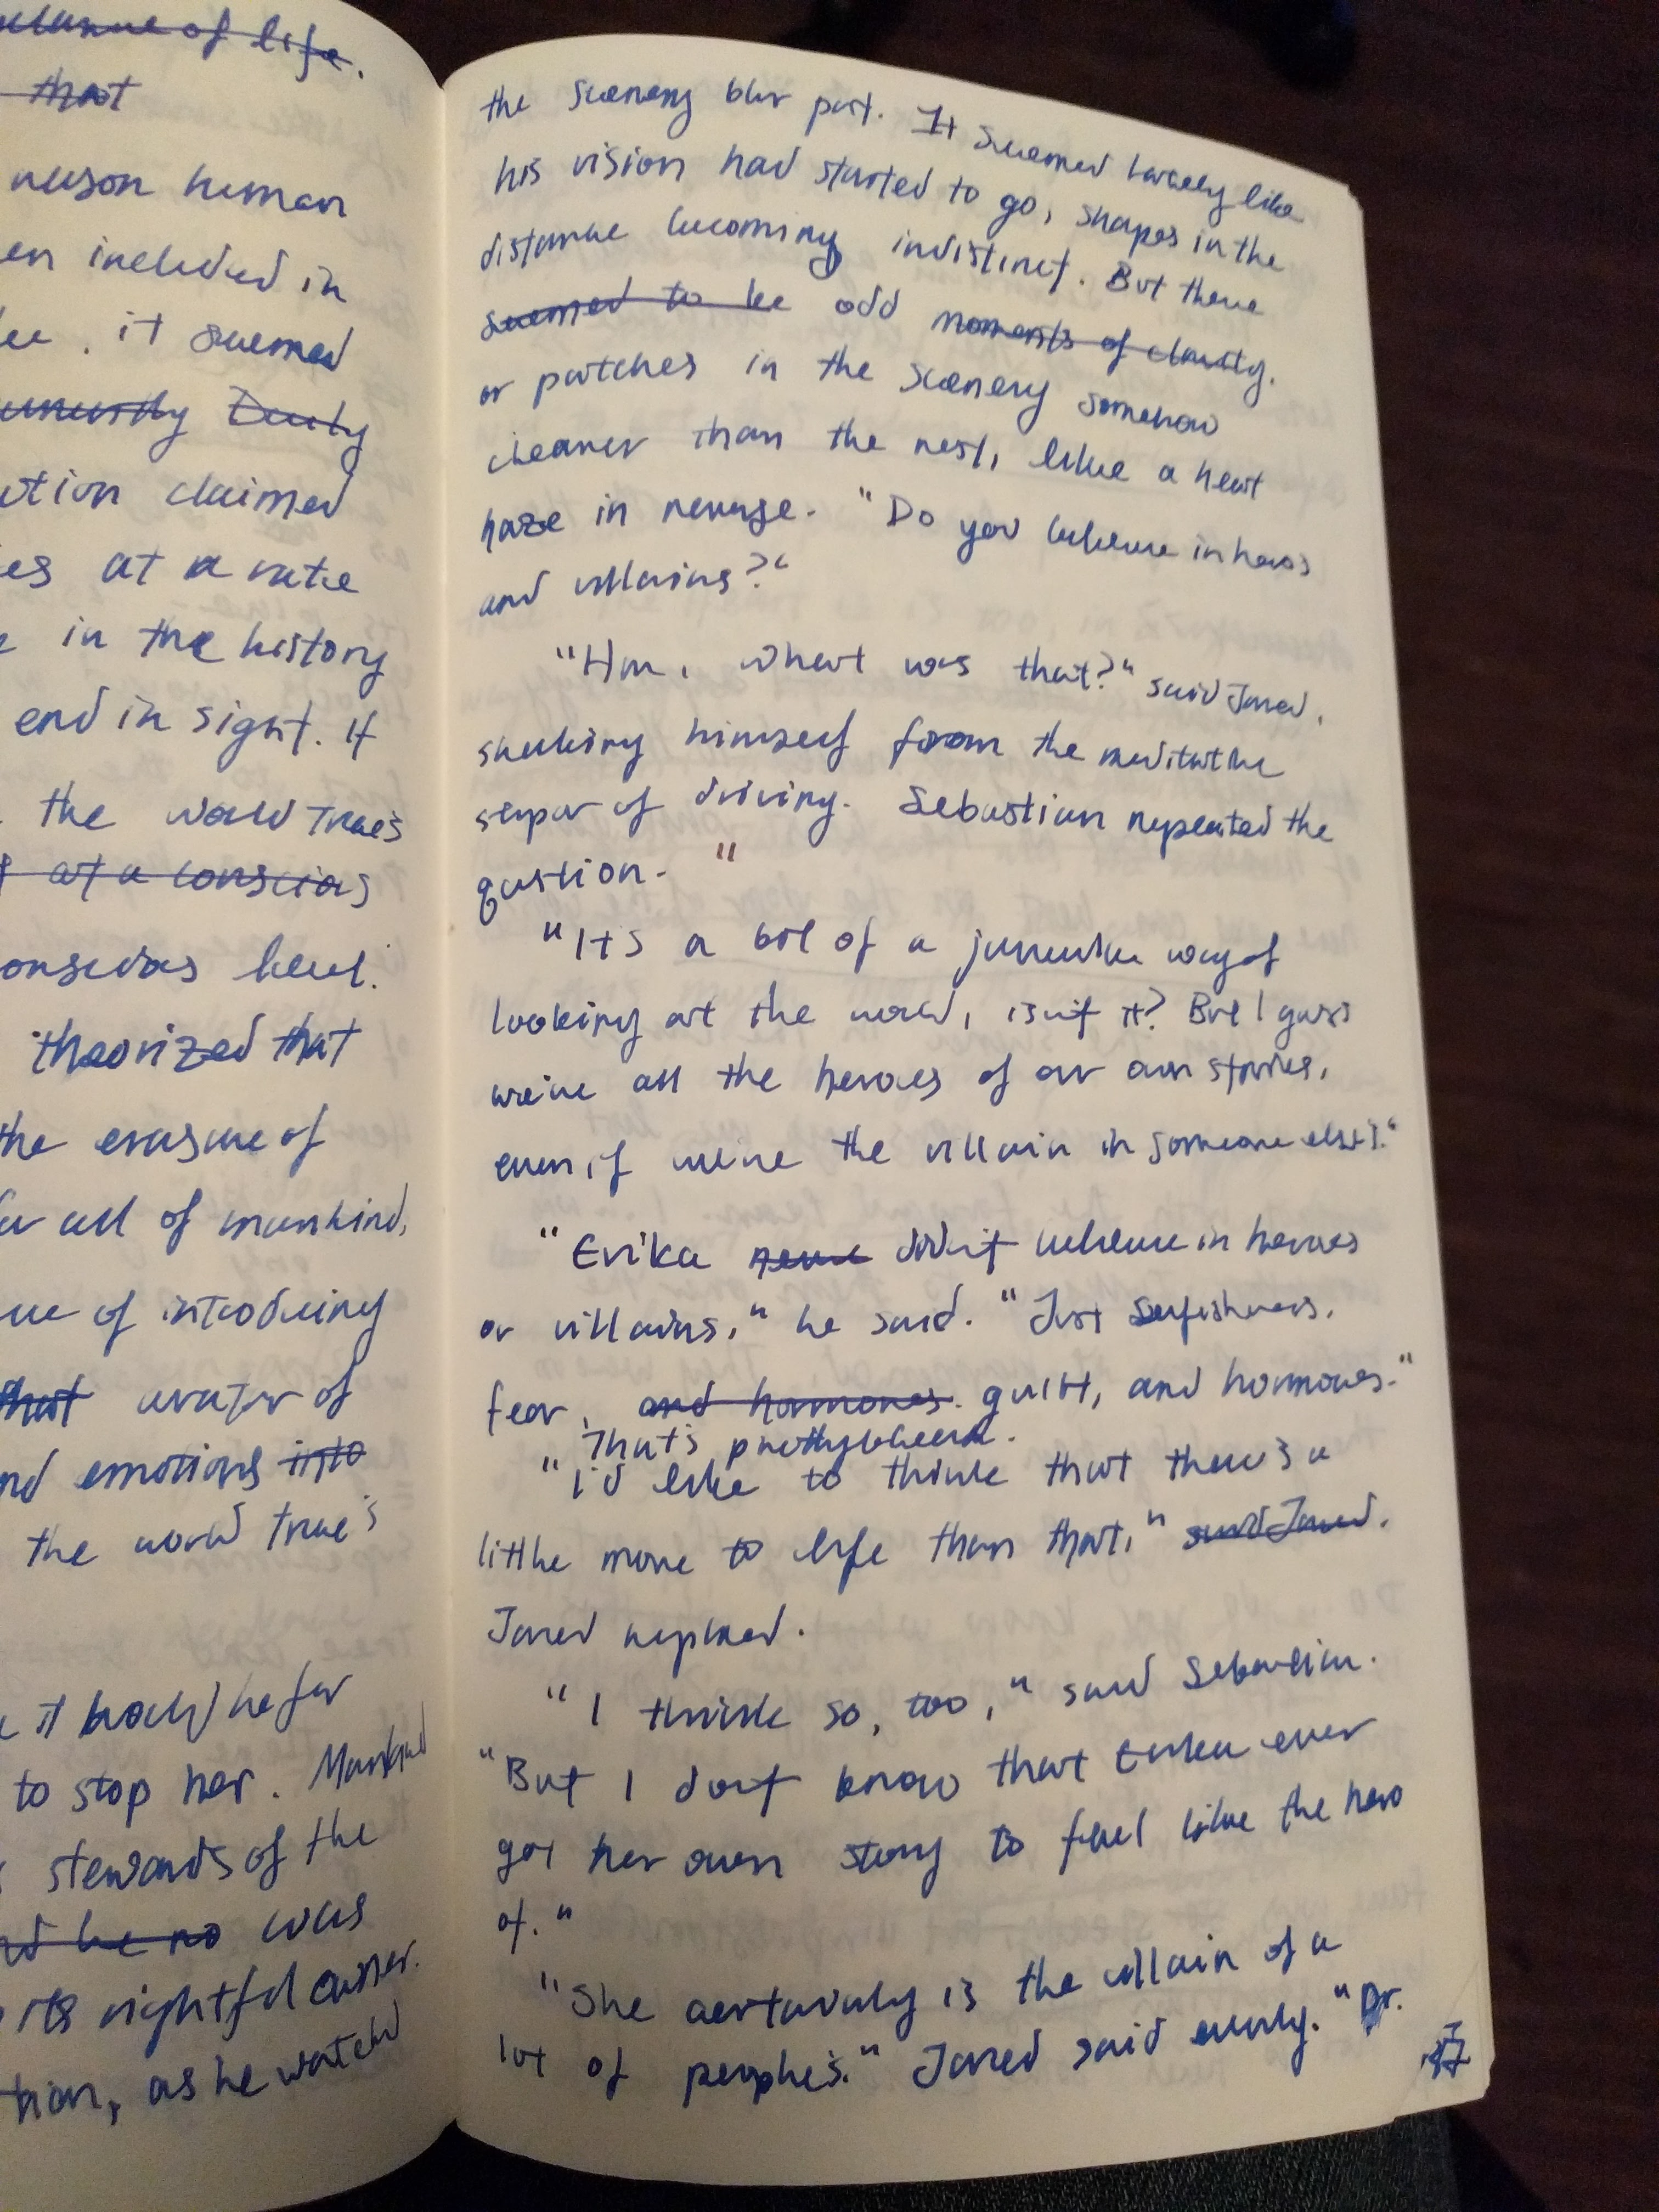 of life.
that
reason human
en included in
it seemed
Deity
claimed
es at a rate
in the history
end in sight. If
the World Tree's
at a conscious
conscious level.
theorized that
the erasure of
all of mankind,
of introducing
that avatar of
nd emotions into
the world tree's
to stop her. Mankind
stewards of the
was
its rightful owner.
tion, as he watched
the scenery blur past. It seemed largely like
his vision had started to go, shapes in the
distance becoming indistinct. But there
seemed to be odd moments of clarity.
or patches in the scenery somehow
clearer than the rest, like a heat
haze in reverse. "Do you believe in heroes
and villains?"
"Hm, what was that?" said Jared,
shaking himself from the meditative
stupor of driving. Sebastian repeated the
question. "
"It's a bit of a juvenile way of
looking at the world, isn't it? But I guess
we're all the heroes of our own stories,
even if we're the villain in someone else's."
"Erika never didn't believe in heroes
or villains," he said. "Just selfishness,
fear, and hormones. guilt, and hormones."
That's pretty bleak.
"I'd like to think that there's a
little more to life than that," said Jared.
Jared replied.
"I think so, too," said Sebastian.
"But I don't know that Erika ever
got her own story to feel like the hero
of."
"She certainly is the villain of a
lot of people's." Jared said evenly. "Dr.